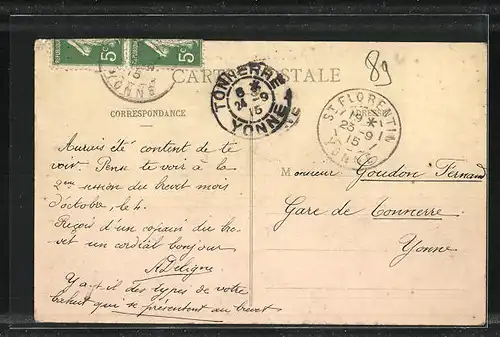 5c 5c
89
CARTE POSTALE
TONNERRE
24-9
15
YONNE
ST FLORENTIN
23-9
15
YONNE
CORRESPONDANCE
ADRESSE
Aurais été content de te
voir. Pense te voir à la
2ème session du brevet mois
d'octobre, le 4.
Reçois d'un copain du bre-
vet un cordial bonjour
ADeligne
Y a-t-il des types de votre
bahut qui se présentent au brevet
Monsieur Goudon Fernand
Gare de Tonnerre
Yonne